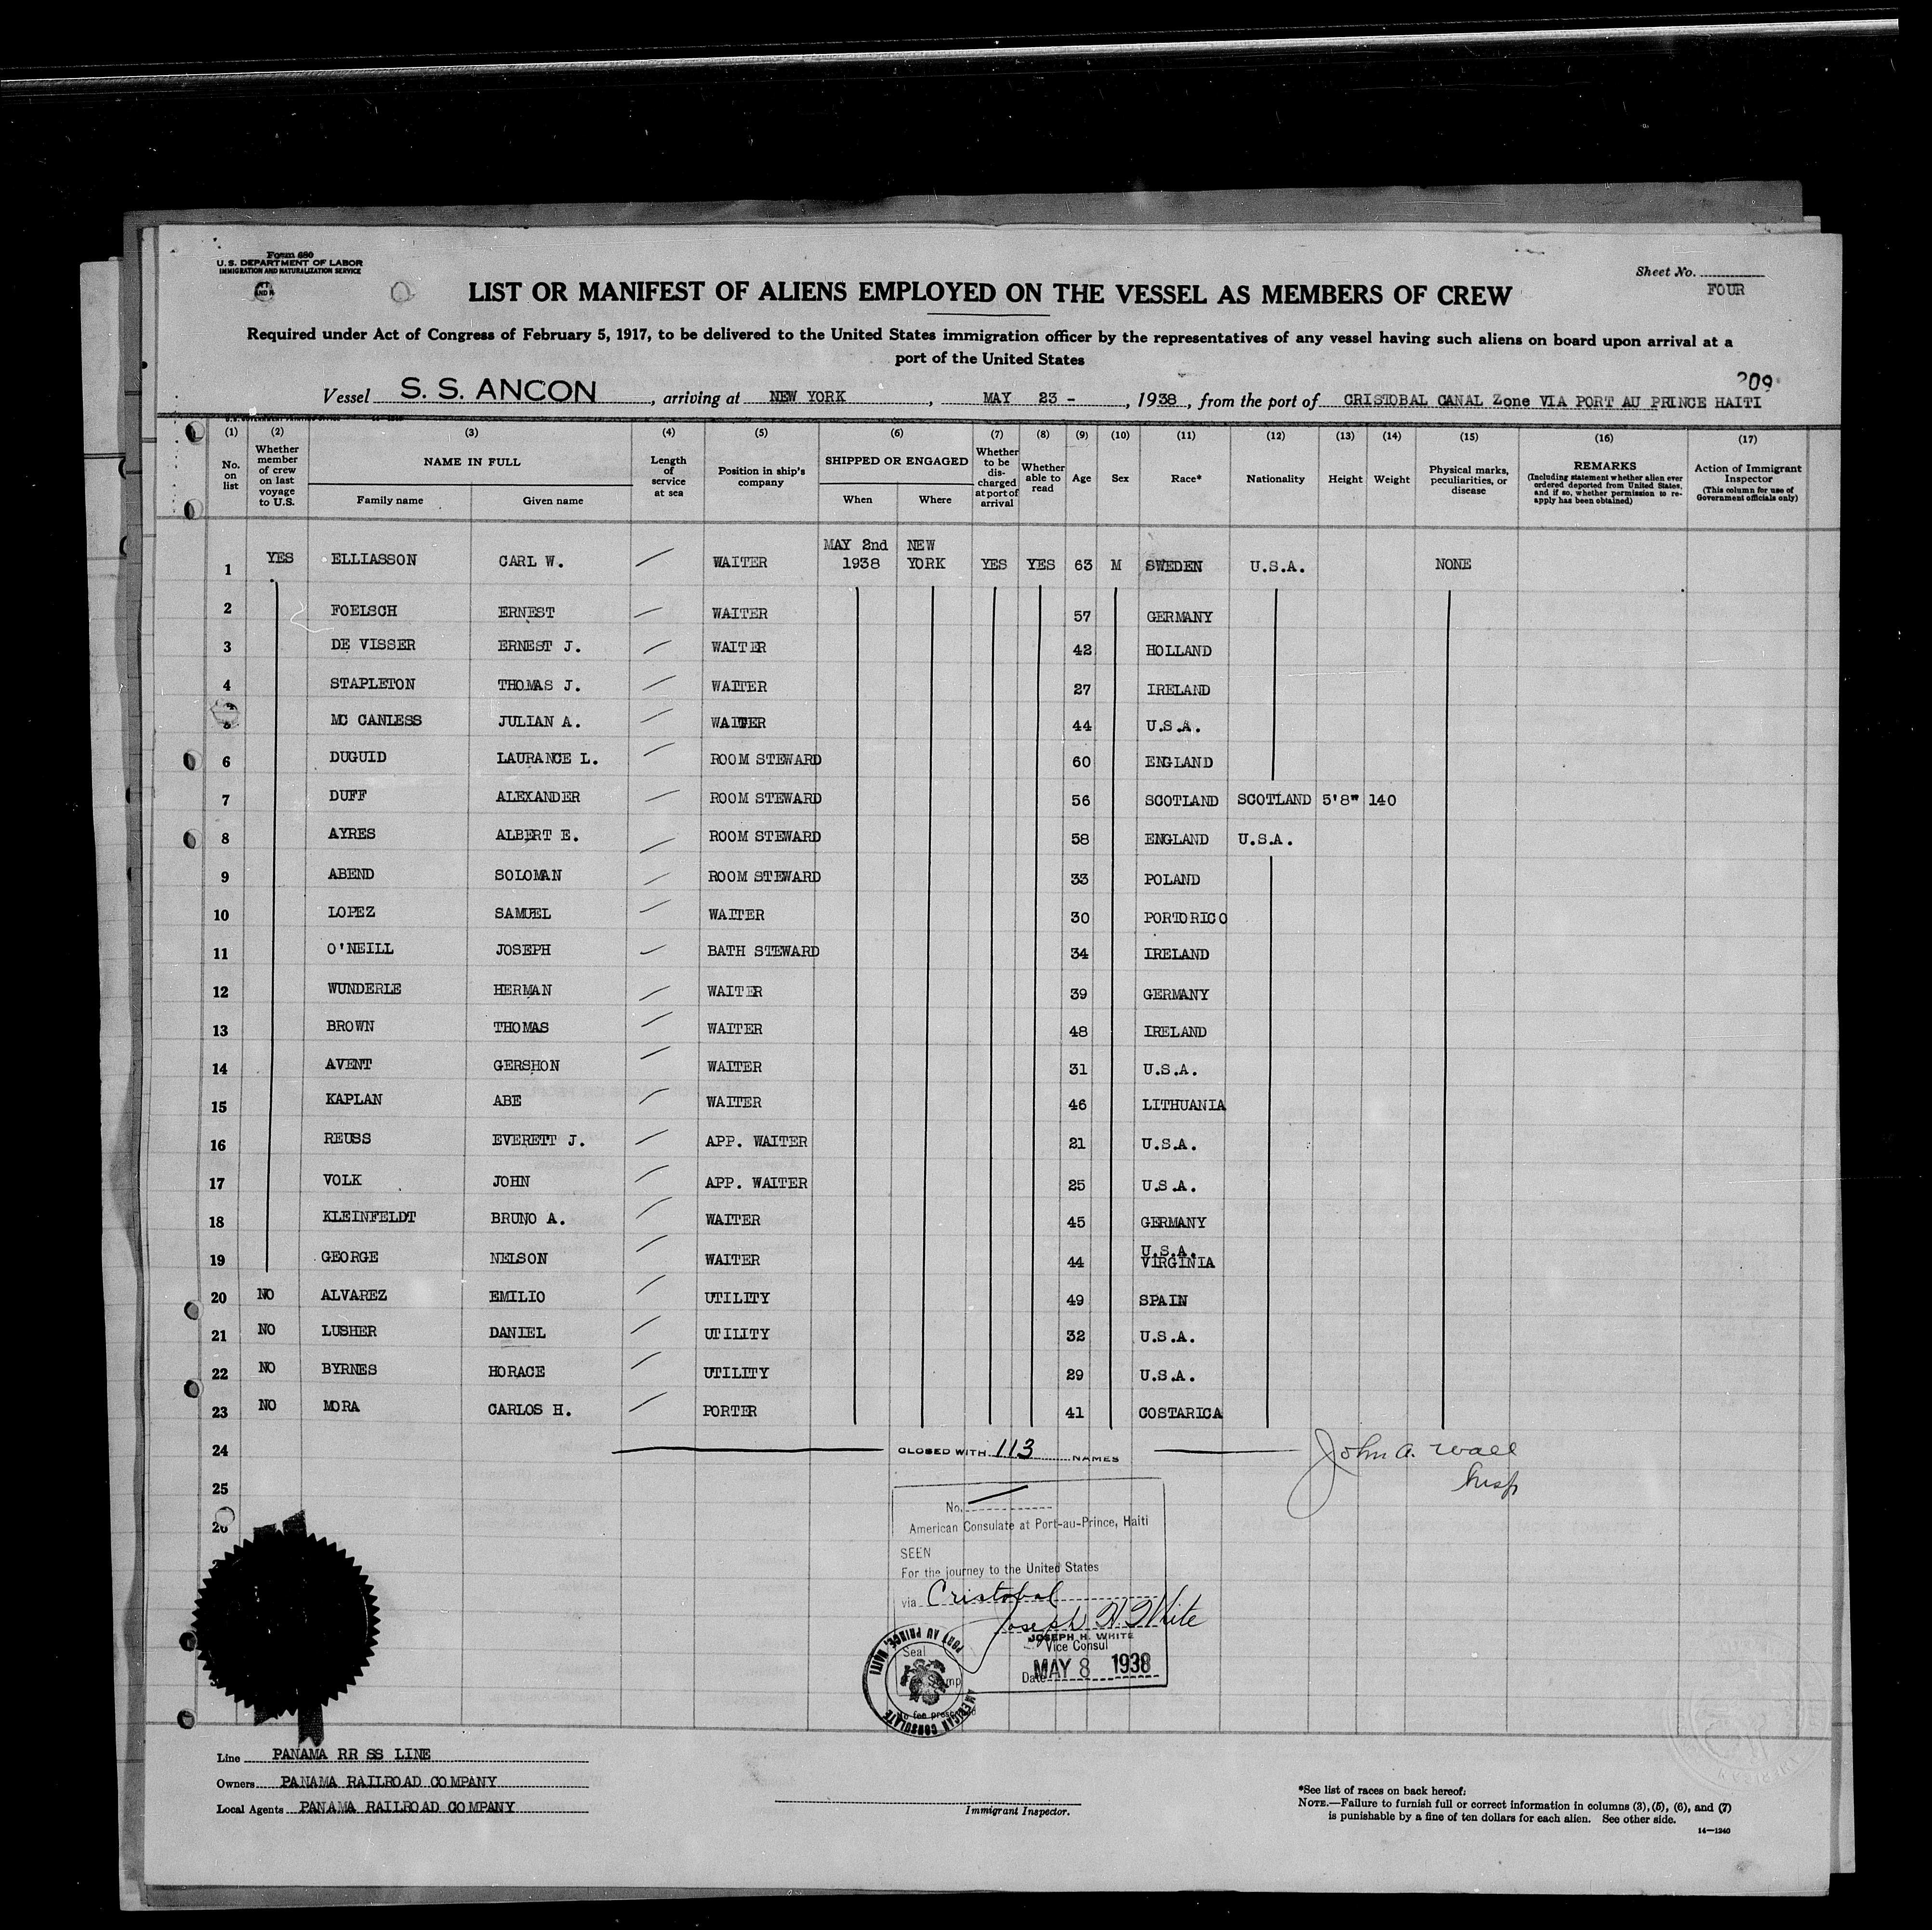 Form 680
U. S. DEPARTMENT OF LABOR
IMMIGRATION AND NATURALIZATION SERVICE
Sheet No.
FOUR
LIST OR MANIFEST OF ALIENS EMPLOYED ON THE VESSEL AS MEMBERS OF CREW
Required under Act of Congress of February 5, 1917, to be delivered to the United States immigration officer by the representatives of any vessel having such aliens on board upon arrival at a
port of the United States
209
Vessel S. S. ANCON, arriving at NEW YORK, MAY 23 -, 1938, from the port of CRISTOBAL CANAL Zone VIA PORT AU PRINCE HAITI
(1) (2) (3) (4) (5) (6) (7) (8) (9) (10) (11) (12) (13) (14) (15) (16) (17)
No. on list
Whether member of crew on last voyage to U.S.
NAME IN FULL
Family name Given name
Length of service at sea
Position in ship's company
SHIPPED OR ENGAGED
When Where
Whether to be discharged at port of arrival
Whether able to read
Age
Sex
Race*
Nationality
Height
Weight
Physical marks, peculiarities, or disease
REMARKS
(Including statement whether alien ever ordered deported from United States, and if so, whether permission to reapply has been obtained)
Action of Immigrant Inspector
(This column for use of Government officials only)
1 YES ELLIASSON CARL W. WAITER MAY 2nd 1938 NEW YORK YES YES 63 M SWEDEN U.S.A. NONE
2 FOELSCH ERNEST WAITER 57 GERMANY
3 DE VISSER ERNEST J. WAITER 42 HOLLAND
4 STAPLETON THOMAS J. WAITER 27 IRELAND
5 MC CANLESS JULIAN A. WAITER 44 U.S.A.
6 DUGUID LAURANCE L. ROOM STEWARD 60 ENGLAND
7 DUFF ALEXANDER ROOM STEWARD 56 SCOTLAND SCOTLAND 5'8" 140
8 AYRES ALBERT E. ROOM STEWARD 58 ENGLAND U.S.A.
9 ABEND SOLOMAN ROOM STEWARD 33 POLAND
10 LOPEZ SAMUEL WAITER 30 PORTORICO
11 O'NEILL JOSEPH BATH STEWARD 34 IRELAND
12 WUNDERLE HERMAN WAITER 39 GERMANY
13 BROWN THOMAS WAITER 48 IRELAND
14 AVENT GERSHON WAITER 31 U.S.A.
15 KAPLAN ABE WAITER 46 LITHUANIA
16 REUSS EVERETT J. APP. WAITER 21 U.S.A.
17 VOLK JOHN APP. WAITER 25 U.S.A.
18 KLEINFELDT BRUNO A. WAITER 45 GERMANY
19 GEORGE NELSON WAITER 44 U.S.A. VIRGINIA
20 NO ALVAREZ EMILIO UTILITY 49 SPAIN
21 NO LUSHER DANIEL UTILITY 32 U.S.A.
22 NO BYRNES HORACE UTILITY 29 U.S.A.
23 NO MORA CARLOS H. PORTER 41 COSTARICA
24 CLOSED WITH 113 NAMES John A. Wall
25 Insp
26
No.
American Consulate at Port-au-Prince, Haiti
SEEN
For the journey to the United States
via Cristobal
Joseph H. White
JOSEPH H. WHITE
Vice Consul
Date MAY 8 1938
Seal
AMERICAN CONSULATE
PORT AU PRINCE, HAITI
No fee prescribed
Line PANAMA RR SS LINE
Owners PANAMA RAILROAD COMPANY
Local Agents PANAMA RAILROAD COMPANY
Immigrant Inspector.
*See list of races on back hereof:
NOTE.—Failure to furnish full or correct information in columns (3), (5), (6), and (7)
is punishable by a fine of ten dollars for each alien. See other side.
14—1240